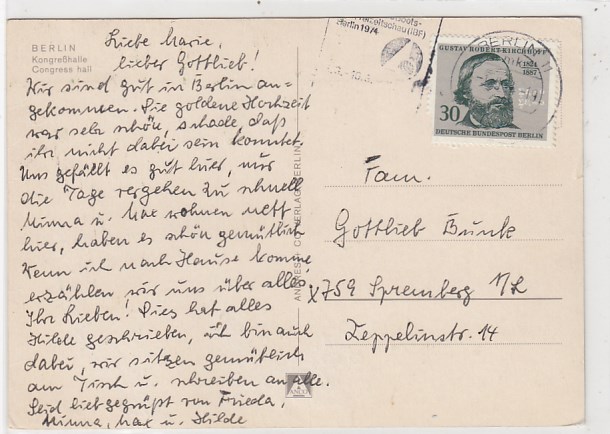 BERLIN
Kongreßhalle
Congress hall
Liebe Marie,
lieber Gottlieb!
Wir sind gut in Berlin an-
gekommen. Die goldene Hochzeit
war sehr schön, schade, daß
ihr nicht dabei sein konntet.
Uns gefällt es gut hier, nur
die Tage vergehen zu schnell
Minna u. Max wohnen nett
hier, haben es schön gemütlich
Wenn ich nach Hause komme
erzählen wir uns über alles
Ihr Lieben! Dies hat alles
Hilde geschrieben, ich bin auch
dabei, wir sitzen gemütlich
am Tisch u. schreiben an alle.
Seid lieb gegrüßt von Frieda,
Minna, Max u. Hilde
Berlin 1974
BERLIN 11
GUSTAV ROBERT KIRCHHOFF
1824
1887
30
DEUTSCHE BUNDESPOST BERLIN
Fam.
Gottlieb Bunk
X759 Spremberg N/L
Zeppelinstr. 14